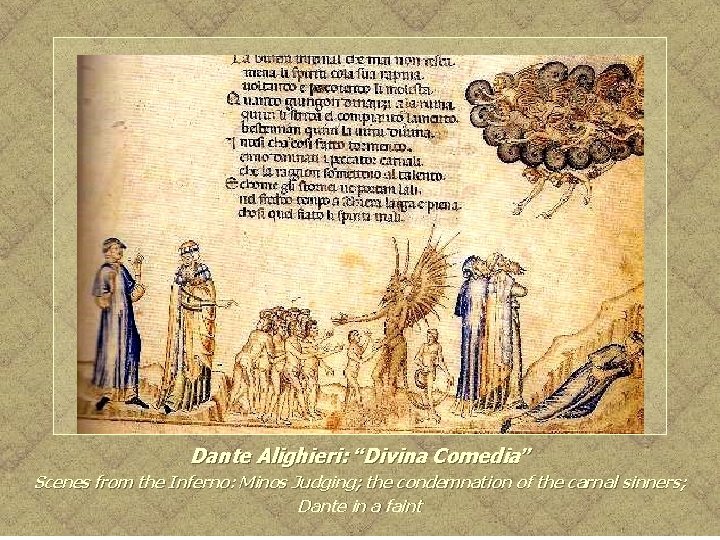 La infernal che mai non resta.
mena li spirti cola sua rapina.
voltando e percotendo li molesta.
Quando giungon dinanzi a la ruina.
quivi el compianto lamento.
quivi la virtu divina.
cha cosi fatto tormento.
enno dannati i peccator carnali.
che la ragion somettono al talento.
E chome gli stornei ne portan lali.
nel freddo tempo a schiera larga e piena.
chosi quel fiato li spiriti mali.
Dante Alighieri: “Divina Comedia”
Scenes from the Inferno: Minos Judging; the condemnation of the carnal sinners;
Dante in a faint